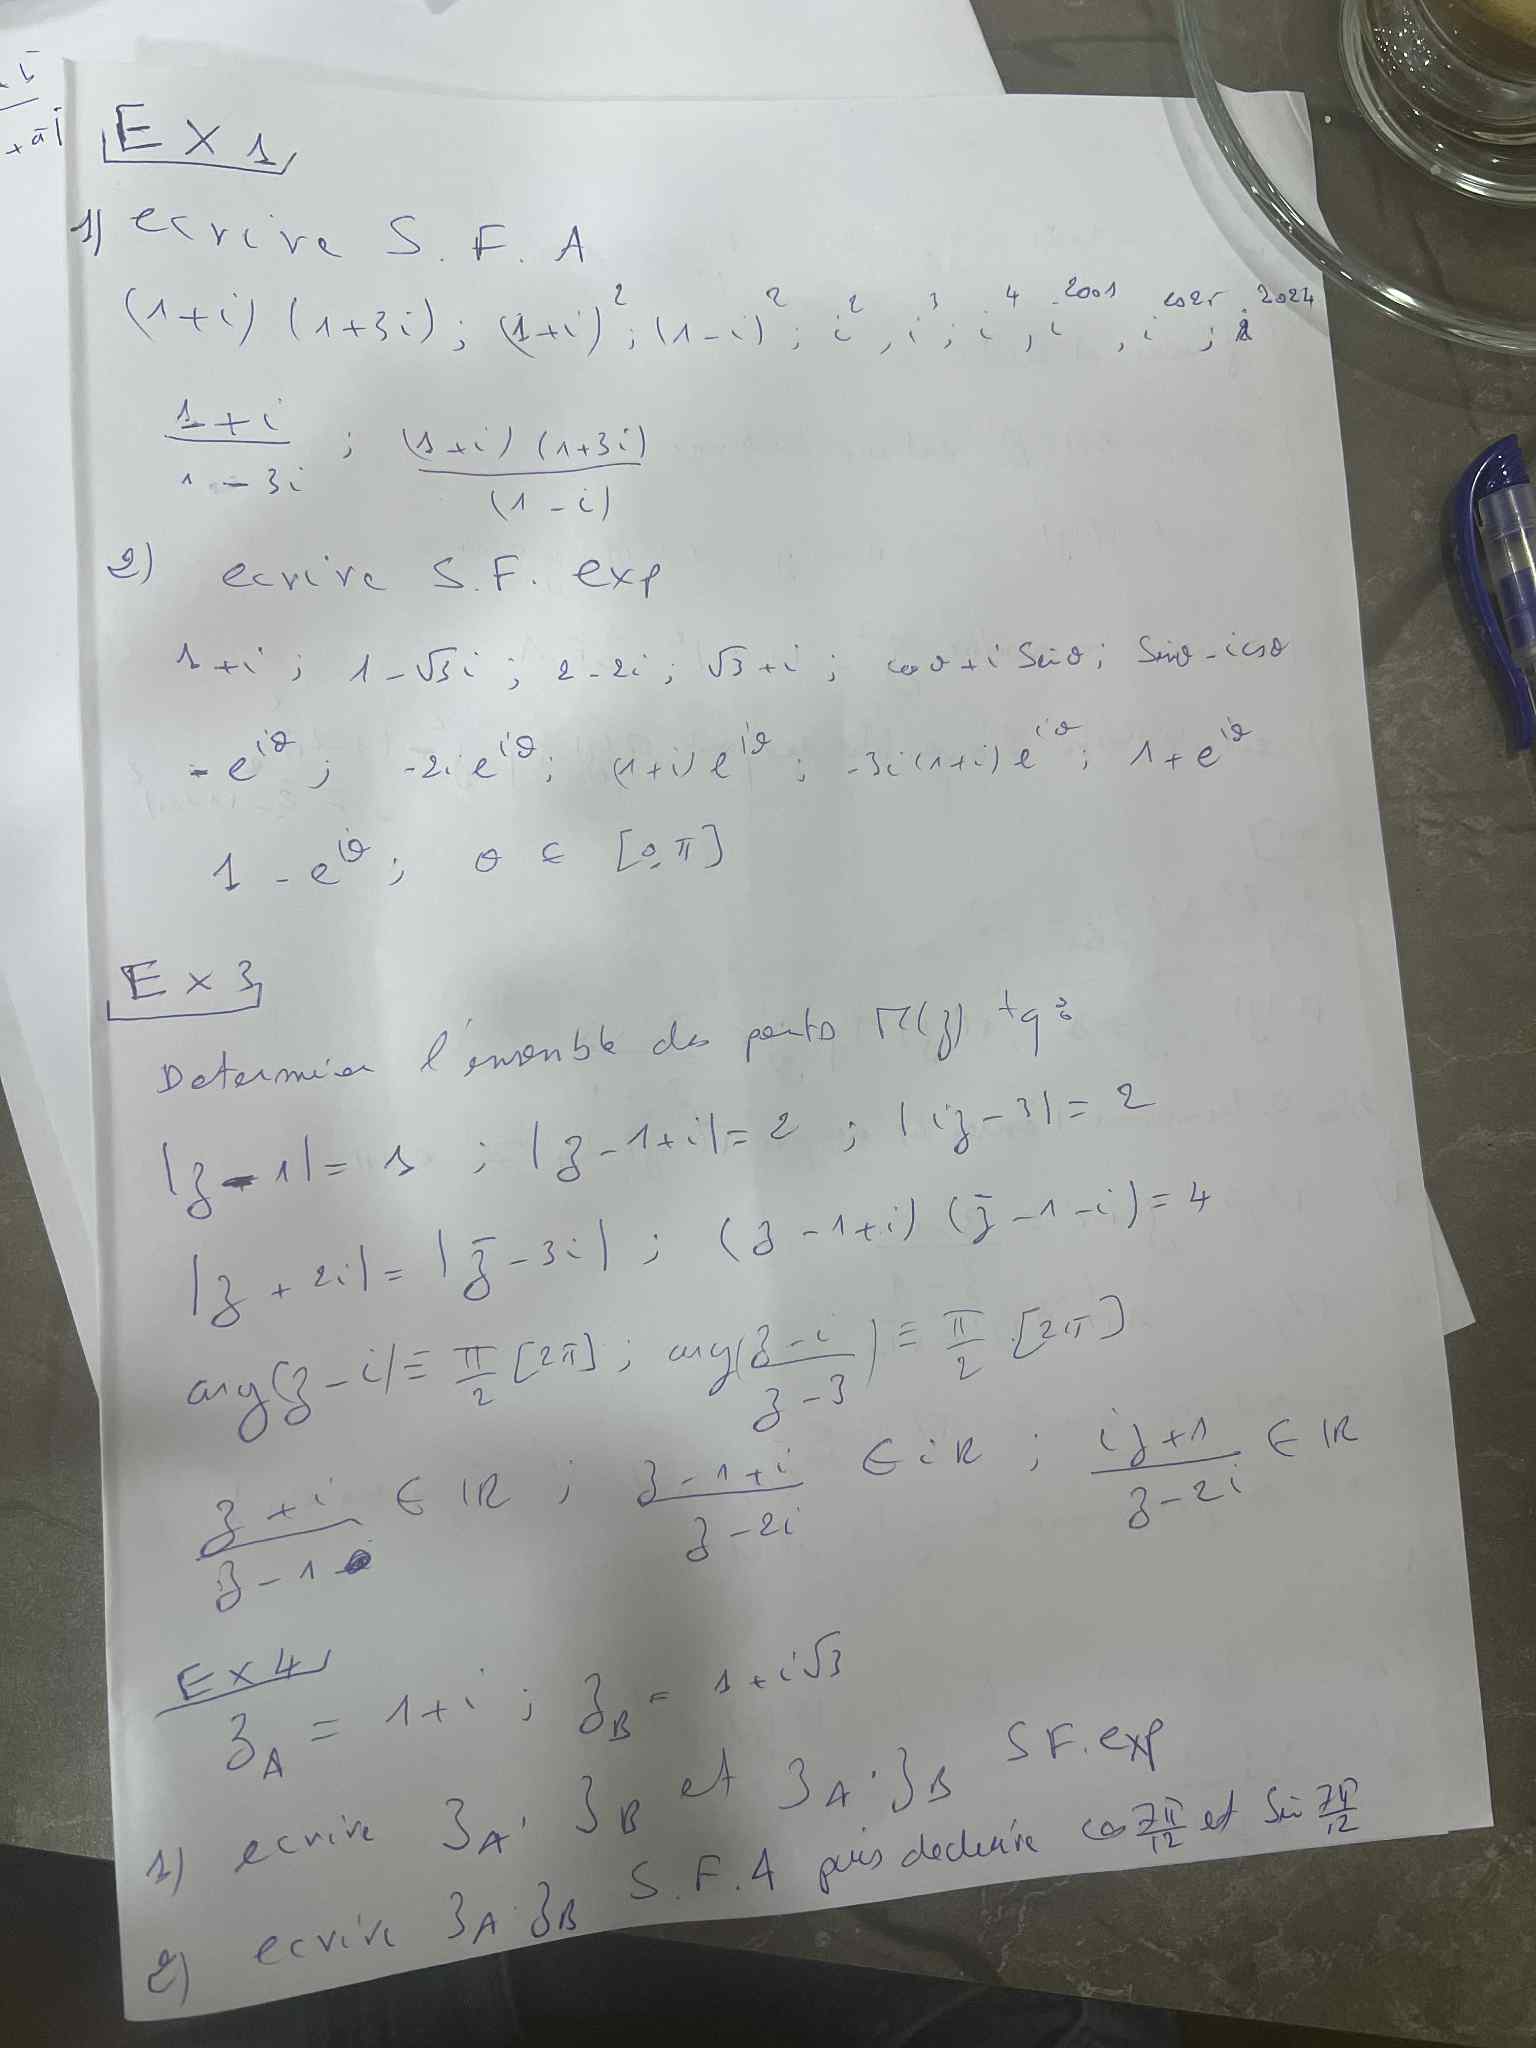 Ex 1
1) ecrire S.F.A
(1+i) (1+3i) ; (1+i)² ; (1-i)² ; i² , i³ ; i⁴ , i²⁰⁰¹ , i²⁰²⁵ ; i²⁰²⁴
(1+i)/(1-3i) ; ((1+i) (1+3i))/(1-i)
2) ecrire S.F. exp
1+i ; 1-√3i ; 2-2i ; √3+i ; cosθ+i Sinθ ; Sinθ-icosθ
-e^{iθ} ; -2i e^{iθ} ; (1+i) e^{iθ} ; -3i(1+i) e^{iθ} ; 1+e^{iθ}
1-e^{iθ} ; θ ∈ [0,π]
Ex 3
Determiner l'ensemble des points M(z) tq :
|z-1| = 1 ; |z-1+i| = 2 ; |iz-3| = 2
|z+2i| = |z̄-3i| ; (z-1+i) (z̄-1-i) = 4
arg(z-i) ≡ π/2 [2π] ; arg((z-i)/(z-3)) ≡ π/2 [2π]
(z+i)/(z-1) ∈ IR ; (z-1+i)/(z-2i) ∈ iR ; (iz+1)/(z-2i) ∈ IR
Ex 4
z_A = 1+i ; z_B = 1+i√3
1) ecrire z_A , z_B et z_A . z_B S F. exp
2) ecrire z_A . z_B S.F.A puis deduire cos 7π/12 et Sin 7π/12